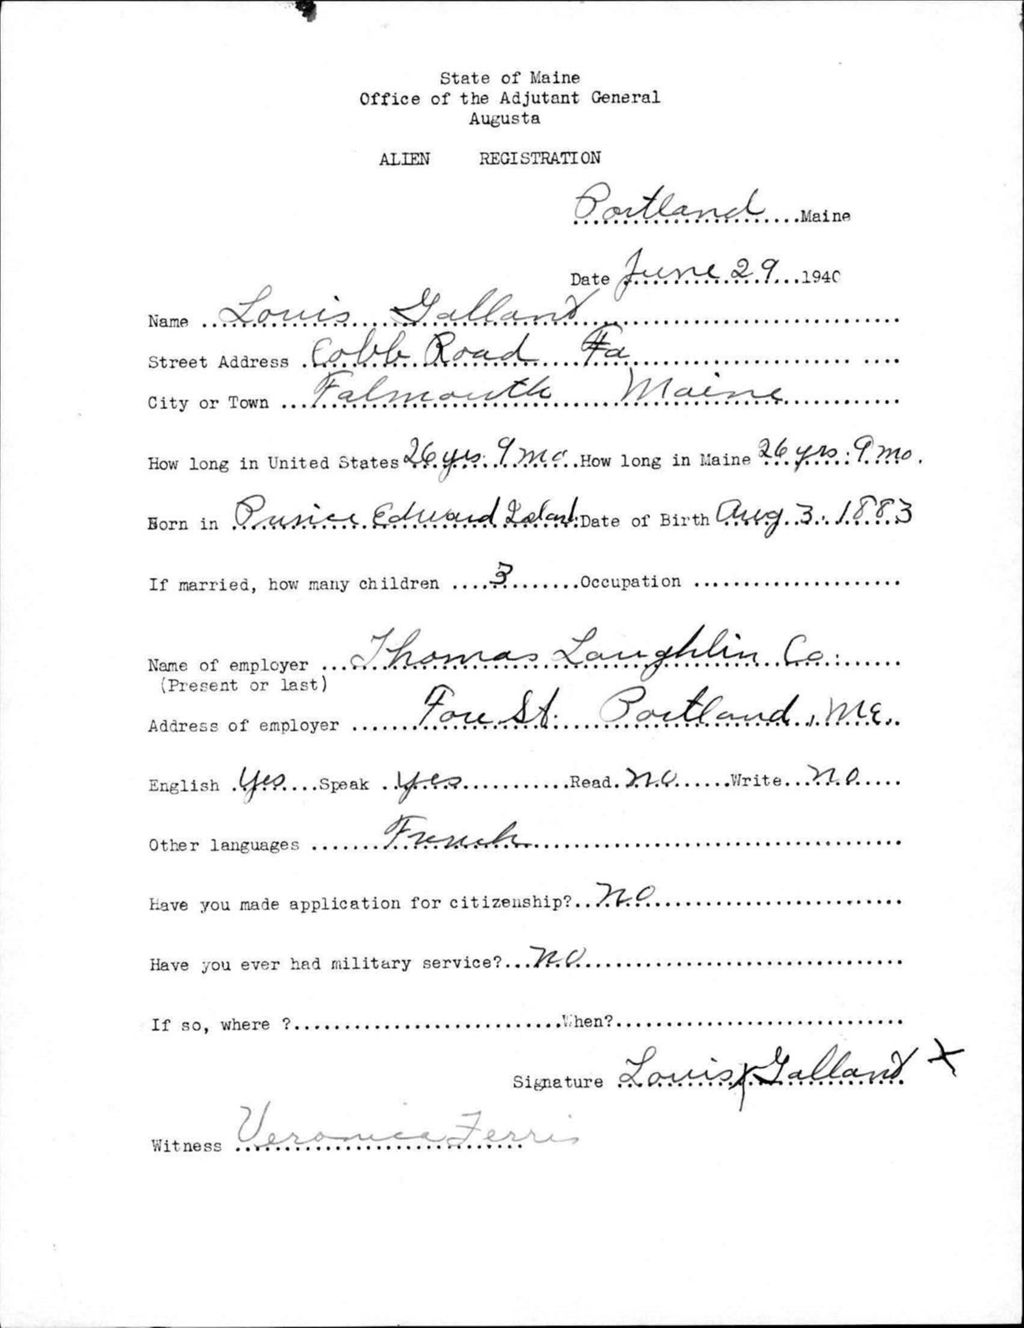 State of Maine
Office of the Adjutant General
Augusta
ALIEN REGISTRATION
Portland Maine
Date June 29 1940
Name Louis Galland
Street Address Cobb Road Fa
City or Town Falmouth Maine
How long in United States 26 yrs. 9 mo. How long in Maine 26 yrs. 9 mo.
Born in Prince Edward Island Date of Birth Aug 3. 1883
If married, how many children 3 Occupation
Name of employer Thomas Laughlin Co.
(Present or last)
Address of employer Fore St. Portland, Me.
English Yes Speak yes Read no Write no
Other languages French
Have you made application for citizenship? no
Have you ever had military service? no
If so, where ? When?
Signature Louis x Galland x
Witness Veronica Ferris